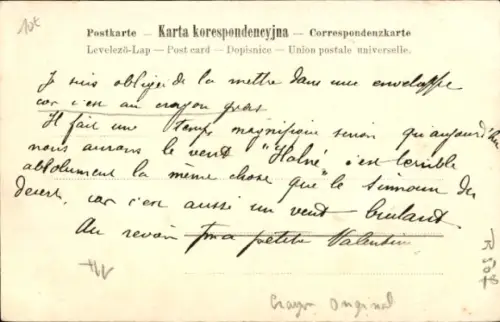 Postkarte — Karta korespondencyjna — Correspondenzkarte
Levelezö-Lap — Post card — Dopisnice — Union postale universelle.
Je suis obligée de la mettre dans une enveloppe
car c'est au crayon gras
Il fait une temps magnifique sinon qu'aujourd'hui
nous aurons le vent "Halné" c'est terrible
absolument la meme chose que le Simoun du
desert, car c'est aussi un vent brulant
Au revoir ma petite Valentine
Crayon Original